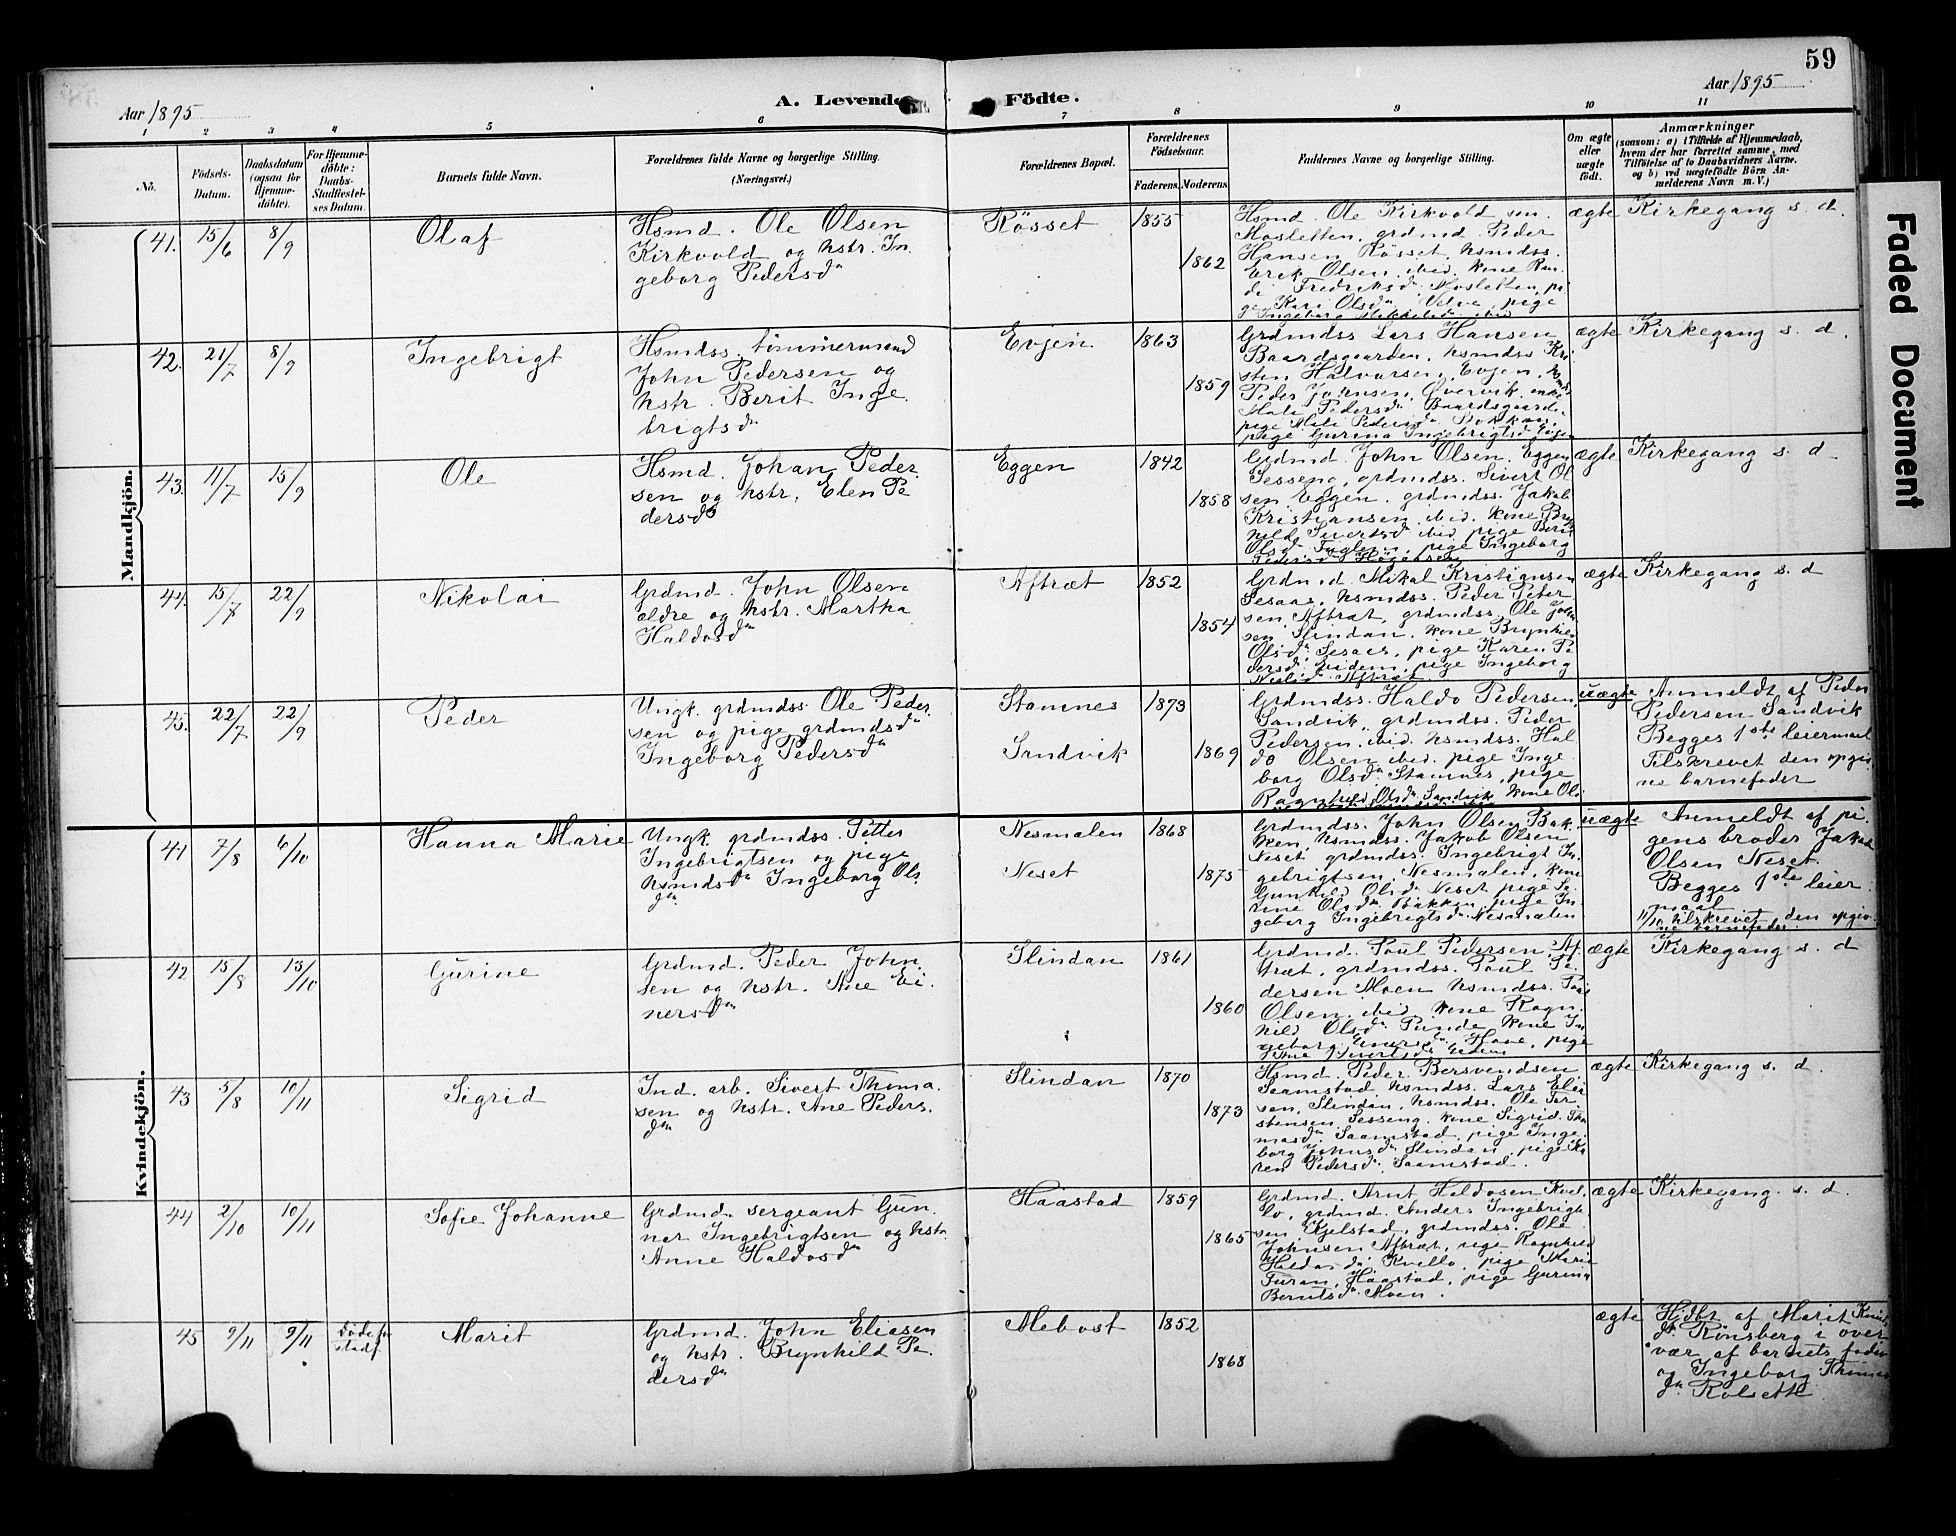 59
Aar 1895
A. Levende Födte.
Aar 1895
1 2 3 4 5 6 7 8 9 10 11
No.
Födsels-
Datum.
Daabsdatum
(ogsaa for
Hjemme-
döbte).
For Hjemme-
döbte:
Daabs-
Stadfæstel-
ses Datum.
Barnets fulde Navn.
Forældrenes fulde Navne og borgerlige Stilling.
(Næringsvei.)
Forældrenes Bopæl.
Forældrenes
Födselsaar.
Faderens.
Moderens.
Faddernes Navne og borgerlige Stilling.
Om ægte
eller
uægte
födt.
Anmærkninger
(saasom: a) i Tilfælde af Hjemmedaab,
hvem der har forrettet samme, med
Tilföielse af to Daabsvidners Navne,
og b) ved uægtefödte Börn An-
melderens Navn m. V.)
Mandkjön.
41. 15/6 8/9
Olaf
Hsmd. Ole Olsen
Kirkvold og hstr. In
geborg Pedersdn
Rösset
1855
1862
Hsmd. Ole Kirkvold sen.
Mosletten, grdmd. Peder
Hansen Rösset, hsmdss.
Erik Olsen ibid. kone Ran
di Fredriksdn Mosletten, pi
ge Kari Olsdn Velve, pige
Ingeborg Mikkelsdn ibid
ægte
Kirkegang s. d.
42. 21/7 8/9
Ingebrigt
Hsmdss. tömmermand
John Pedersen og
hstr. Berit Inge
brigtsdn
Evjen
1863
1859
Grdmdss Lars Hansen
Baardsgaarden, hsmdss Kri
sten Halvorsen, Evjen,
Peder Johnsen, Övervik, enke
Mali Pedersdn Baardsgaarden
pige Mali Pedersdn Bakken
pige Gurina Ingebrigtsdn Evjen
ægte
Kirkegang s. d.
43. 11/7 15/9
Ole
Hsmd. Johan Peder
sen og hstr. Elen Pe
dersdn
Eggen
1842
1858
Grdmd. John Olsen Eggen
Sesseng, grdmdss. Sivert Ol
sen Eggen, grdmdss. Jakob
Kristiansen ibid. kone Bryn
hild Sivertsdn ibid pige Berit
Olsdn Fuglem, pige Ingeborg
Pedersdn
ægte
Kirkegang s. d
44. 15/7 22/9
Nikolai
Grdmd. John Olsen
ældre og hstr. Martha
Haldosdn
Aftræt
1852
1854
Grdmd. Mikal Kristiansen
Sesaas, hsmdss. Peder Peter
sen, Aftræt, grdmdss. Ole John
sen Slindan. kone Brynhild
Olsdn Sesaas, pige Karen Pe
dersdn Evidem, pige Ingeborg
Nilsdn Aftræt
ægte
Kirkegang s. d
45. 22/7 22/9
Peder
Ungk. grdmdss Ole Peder
sen og pige grdmdsdn
Ingeborg Pedersdn
Stamnes
Sandvik
1873
1869
Grdmdss. Haldo Pedersen
Sandvik, grdmdss. Peder
Pedersen, ibid. hsmdss. Hal
do Olsen ibid. pige Inge
borg Olsdn Stamnes, pige
Ragnhild Olsdn Sandvik kone Ols
uægte
Anmeldt af Peder
Pedersen Sandvik
Begges 1ste leiermaal
Tilskrevet den opgiv
ne barnefader
Kvindekjön.
41 7/8 6/10
Hanna Marie
Ungk. grdmdss. Petter
Ingebrigtsen og pige
hsmdsdn Ingeborg Ols
dn
Nesmalen
Neset
1868
1875
Grdmdss. John Olsen Bak
ken, hsmdss. Jakob Olsen
Neset grdmdss. Ingebrigt In
gebrigtsen, Nesmalen, kone
Gunhild Olsdn Neset pige Se
rine Olsdn Bakken, pige In
geborg Ingebrigtsdn Nesmalen
uægte
Anmeldt af pi
gens broder Jakob
Olsen Neset.
Begges 1ste leier
maal
11/10 tilskrevet den opgiv
ne barnefader.
42 15/8 13/10
Gurine
Grdmd. Peder John
sen og hstr. Ane Ei
nersdn
Slindan
1861
1860
Grdmd. Poul Pedersen Af
træt, grdmdss. Poul Pe
dersen Moen hsmdss. Poul
Olsen ibid kone Ragn
hild Olsdn Punde kone In
geborg Einersdn Hove, pige
Ane Sivertsdn Evidem
ægte
Kirkegang s. d
43 5/8 10/11
Sigrid
Ind. arb. Sivert Thoma
sen og hstr. Ane Peders
dn
Slindan
1870
1873
Hsmd. Peder Bersvendsen
Saamstad hsmdss. Lars Elli
sen, Slindan, hsmdss. Ole Tor
stensen Sesseng, kone Sigrid Tho
masdn Saamstad, pige Inge
borg Johnsdn Slindan, pige Ka
ren Pedersdn Saamstad.
ægte
Kirkegang s. d.
44 2/10 10/11
Sofie Johanne
Grdmd. sergeant Gun
nar Ingebrigtsen og hstr.
Anne Haldosdn
Haastad
1859
1865
Grdmd. Arnt Haldosen Kvel
lo, grdmd. Anders Ingebrigt
sen Kjelstad, grdmdss. Ole
Johnsen Aftræt, pige Ragnhild
Haldosdn Kvello, pige Marie
Furan, Haastad, pige Gurina
Berntsdn Moen.
ægte
Kirkegang s. d.
45 9/11 9/11 döde för
stadf.
Marit
Grdmd. John Eliasen
og hstr. Brynhild Pe
dersdn
Mebost
1852
1868
ægte
Hjdbt af Marit Knuts
dn Rönsberg i over
vær af barnets fader
og Ingeborg Thomas
dn Rolseth
Faded Document